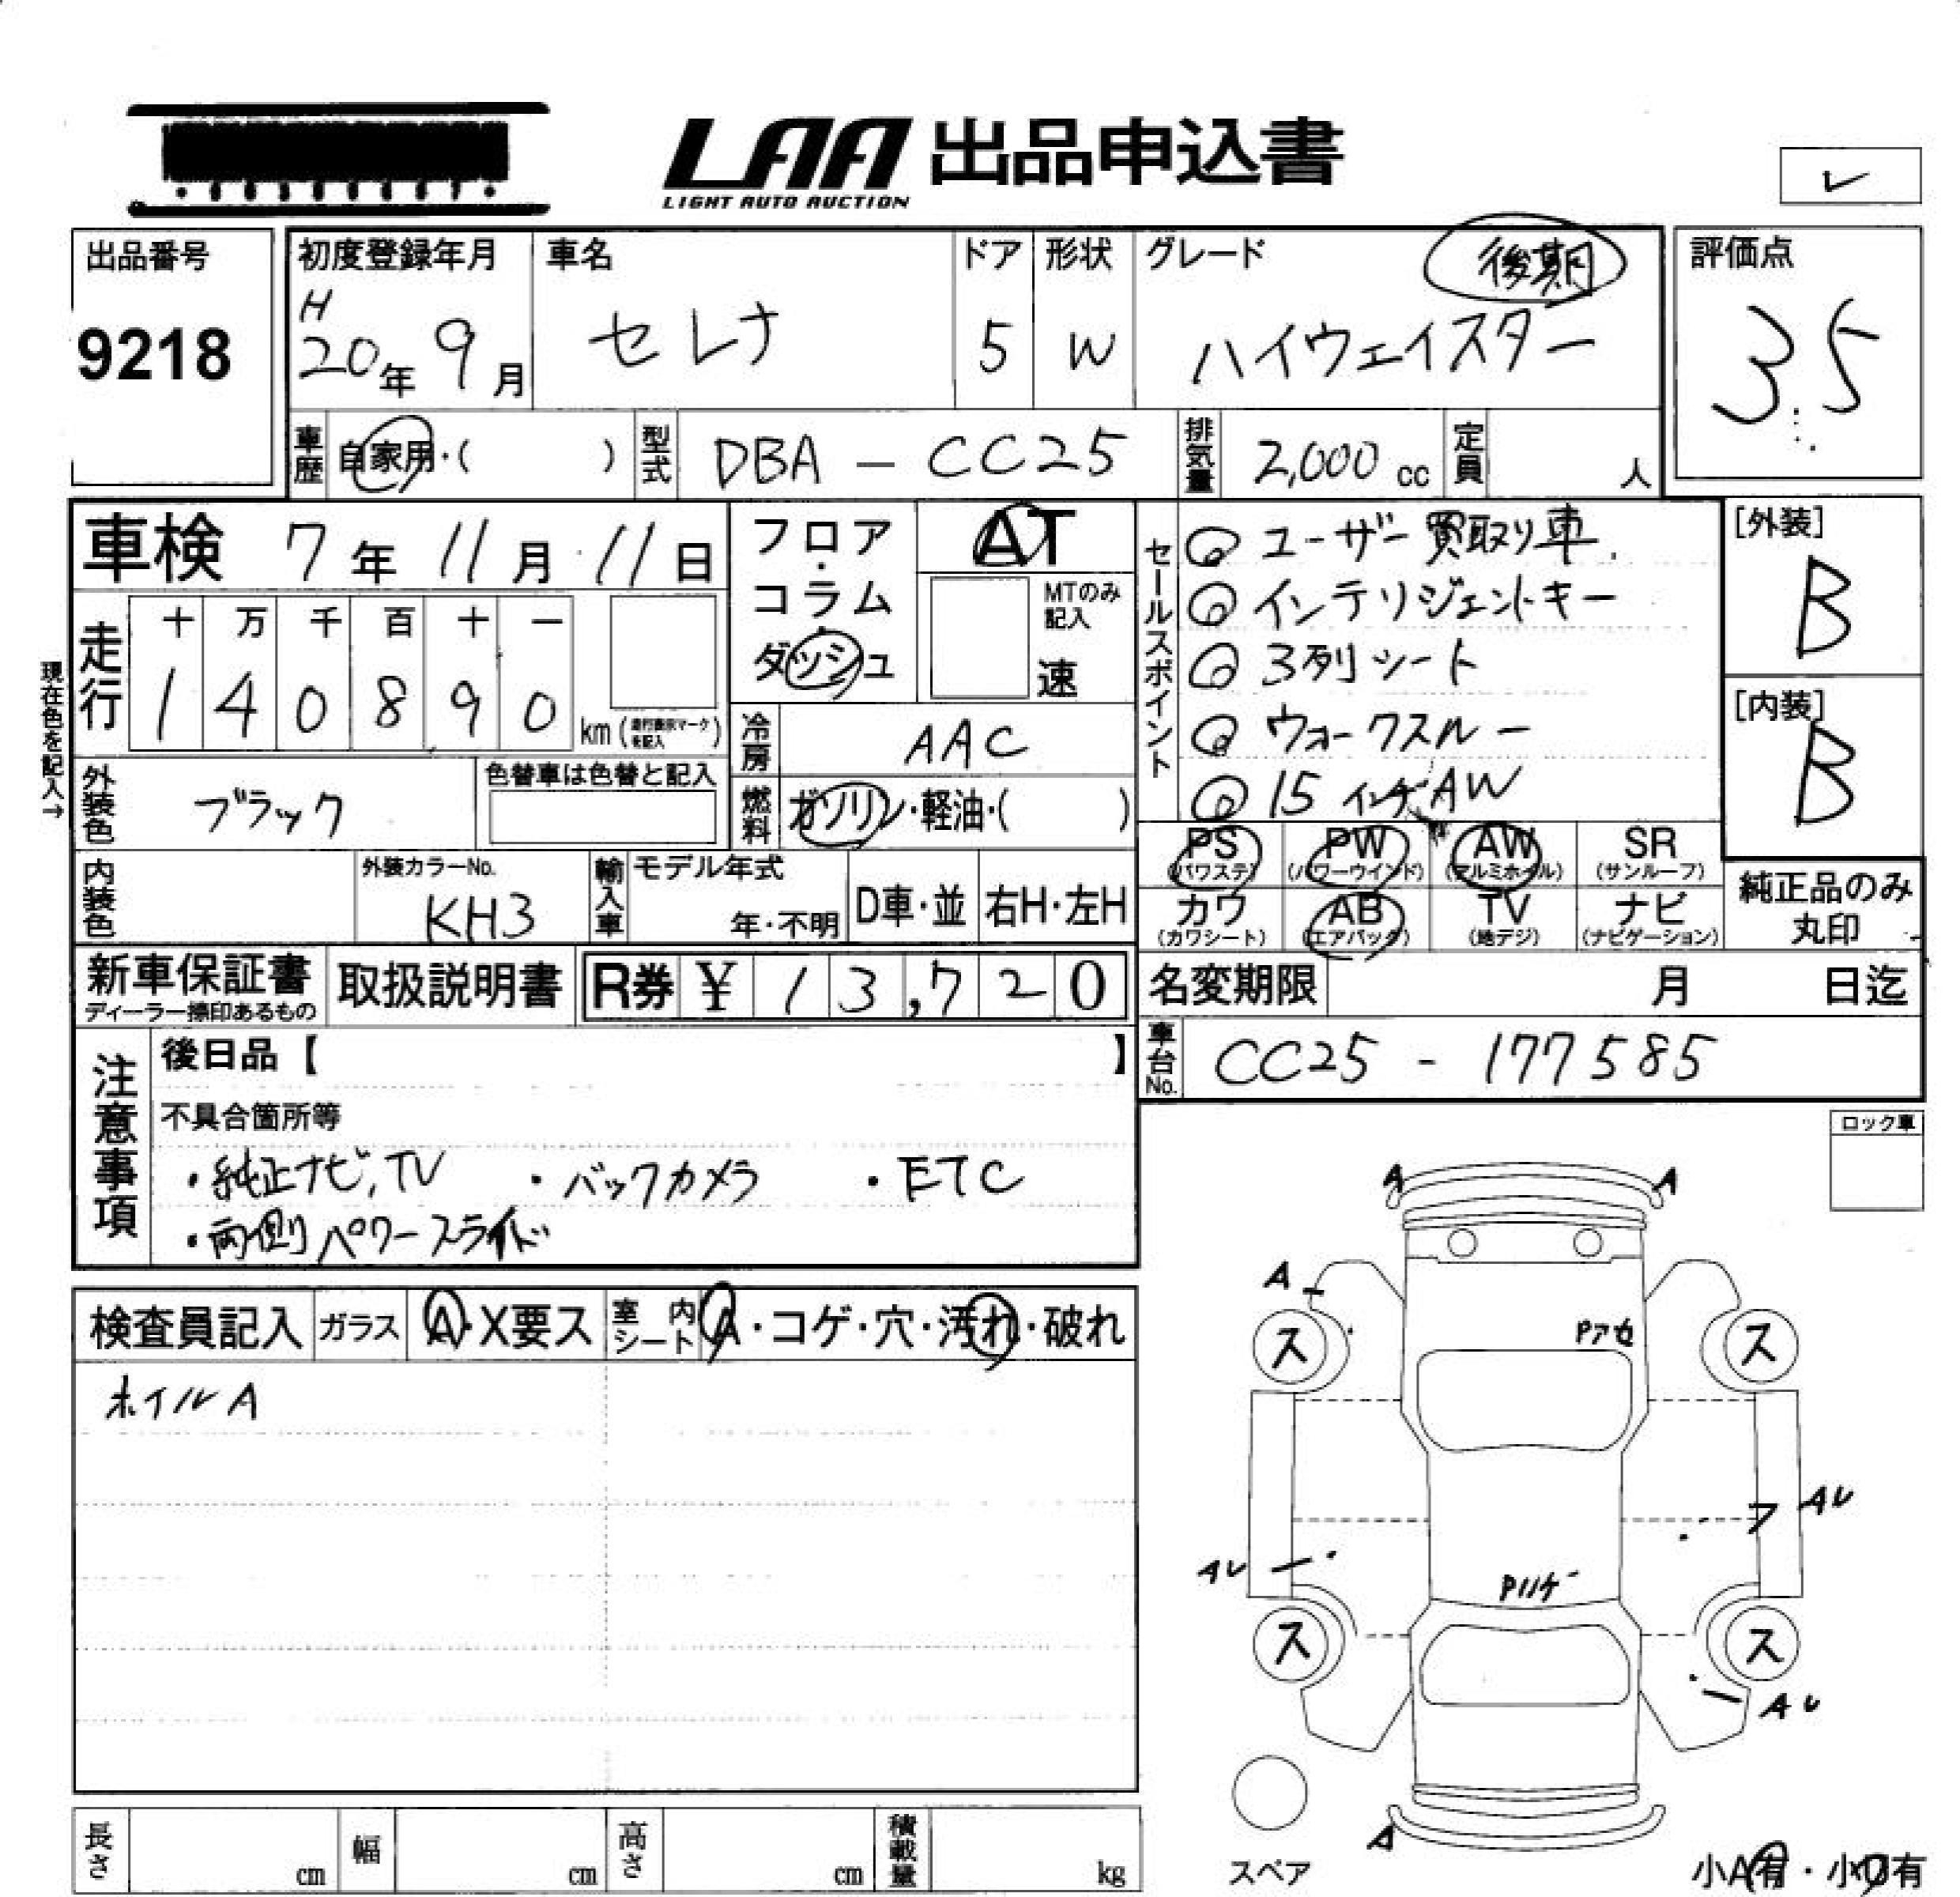 LAA 出品申込書
LIGHT AUTO AUCTION
出品番号
9218
初度登録年月
H
20年 9月
車名
セレナ
ドア
5
形状
W
グレード
後期
ハイウェイスター
評価点
3.5
車歴 自家用・( )
型式 DBA - CC25
排気量 2,000 cc
定員 人
車検 7年 11月 11日
走行
十 万 千 百 十 一
1 4 0 8 9 0 km (走行表示マークを記入)
現在色を記入→
フロア・コラム・ダッシュ
AT
MTのみ記入
速
冷房 AAC
燃料 ガソリン・軽油・( )
外装色 ブラック
色替車は色替と記入
内装色
外装カラーNo.
KH3
輸入車
モデル年式
年・不明
D車・並
右H・左H
セールスポイント
◎ユーザー買取り車.
◎インテリジェントキー
◎3列シート
◎ウォークスルー
◎15インチAW
[外装]
B
[内装]
B
PS (パワステ)
PW (パワーウインド)
AW (アルミホイル)
SR (サンルーフ)
カワ (カワシート)
AB (エアバック)
TV (地デジ)
ナビ (ナビゲーション)
純正品のみ丸印
新車保証書
ディーラー捺印あるもの
取扱説明書
R券 ¥ 13,720
名変期限 月 日迄
車台No. CC25 - 177585
注意事項
後日品【 】
不具合箇所等
・純正ナビ,TV ・バックカメラ ・ETC
・両側パワースライド
ロック車
検査員記入
ガラス A・X要ス
室内シート A・コゲ・穴・汚れ・破れ
ホイルA
A A
A
ス ス
Pアセ
AU
AU
Pハゲ
ス ス
AU
A
スペア
小A有・小U有
長さ cm
幅 cm
高さ cm
積載量 kg